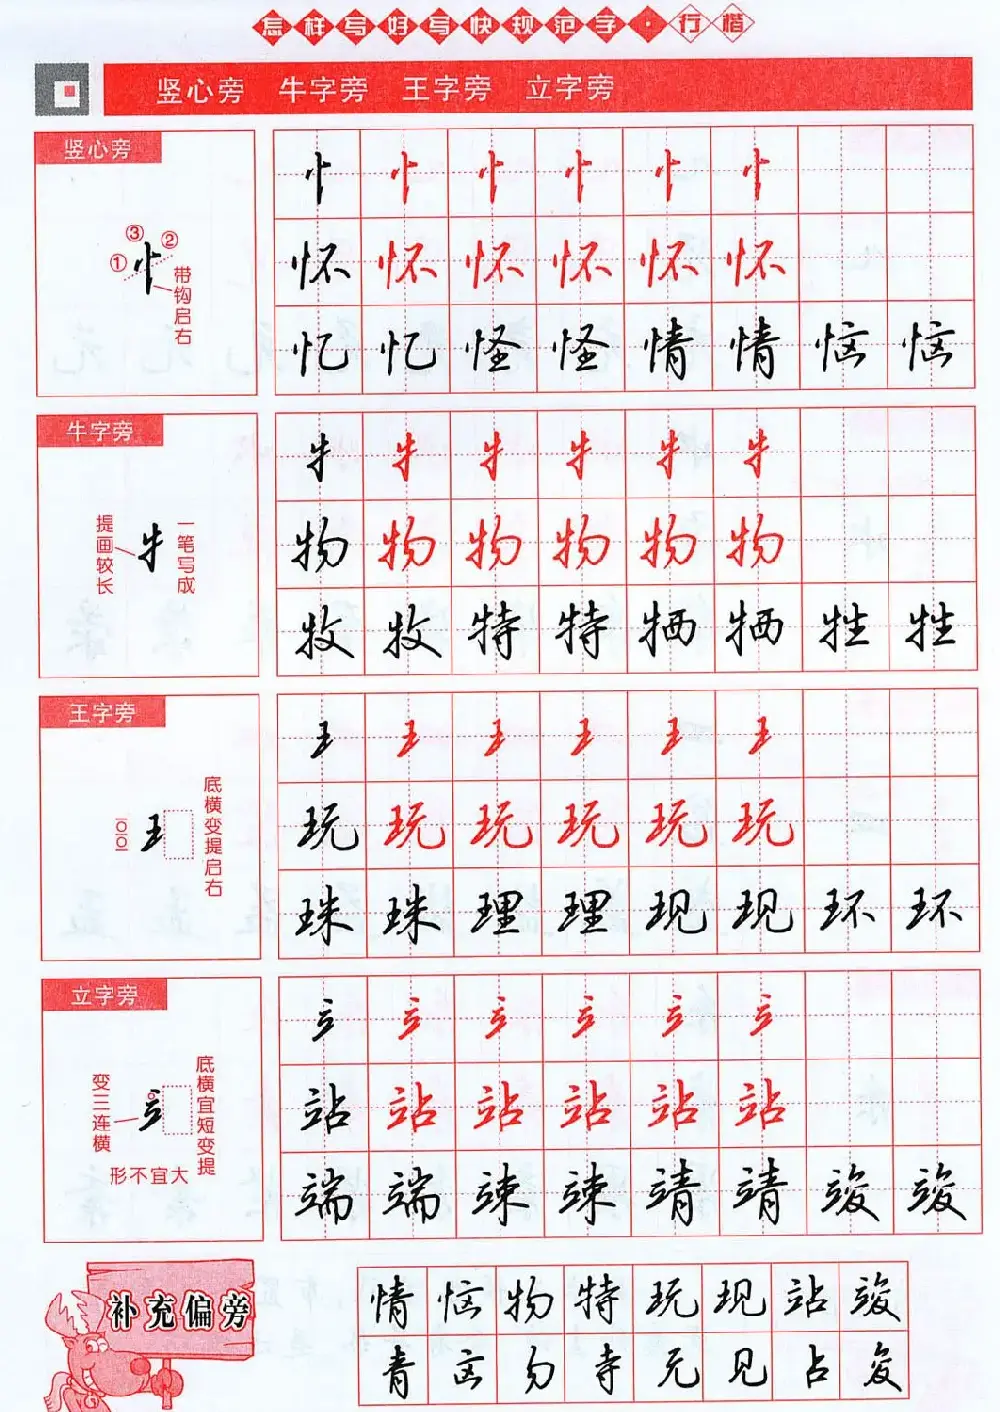 怎样写好写快规范字·行楷
竖心旁 牛字旁 王字旁 立字旁
竖心旁
③
① ②
带钩启右
忄 忄 忄 忄 忄 忄
怀 怀 怀 怀 怀 怀
忆 忆 怪 怪 情 情 恼 恼
牛字旁
提画较长
一笔写成
牜 牜 牜 牜 牜 牜
物 物 物 物 物 物
牧 牧 特 特 牺 牺 牲 牲
王字旁
底横变提启右
王 王 王 王 王 王
玩 玩 玩 玩 玩 玩
珠 珠 理 理 现 现 环 环
立字旁
变三连横
底横宜短变提
形不宜大
立 立 立 立 立 立
站 站 站 站 站 站
端 端 竦 竦 靖 靖 竣 竣
补充偏旁
情 恼 物 特 玩 现 站 竣
青 㐫 勿 寺 元 见 占 夋